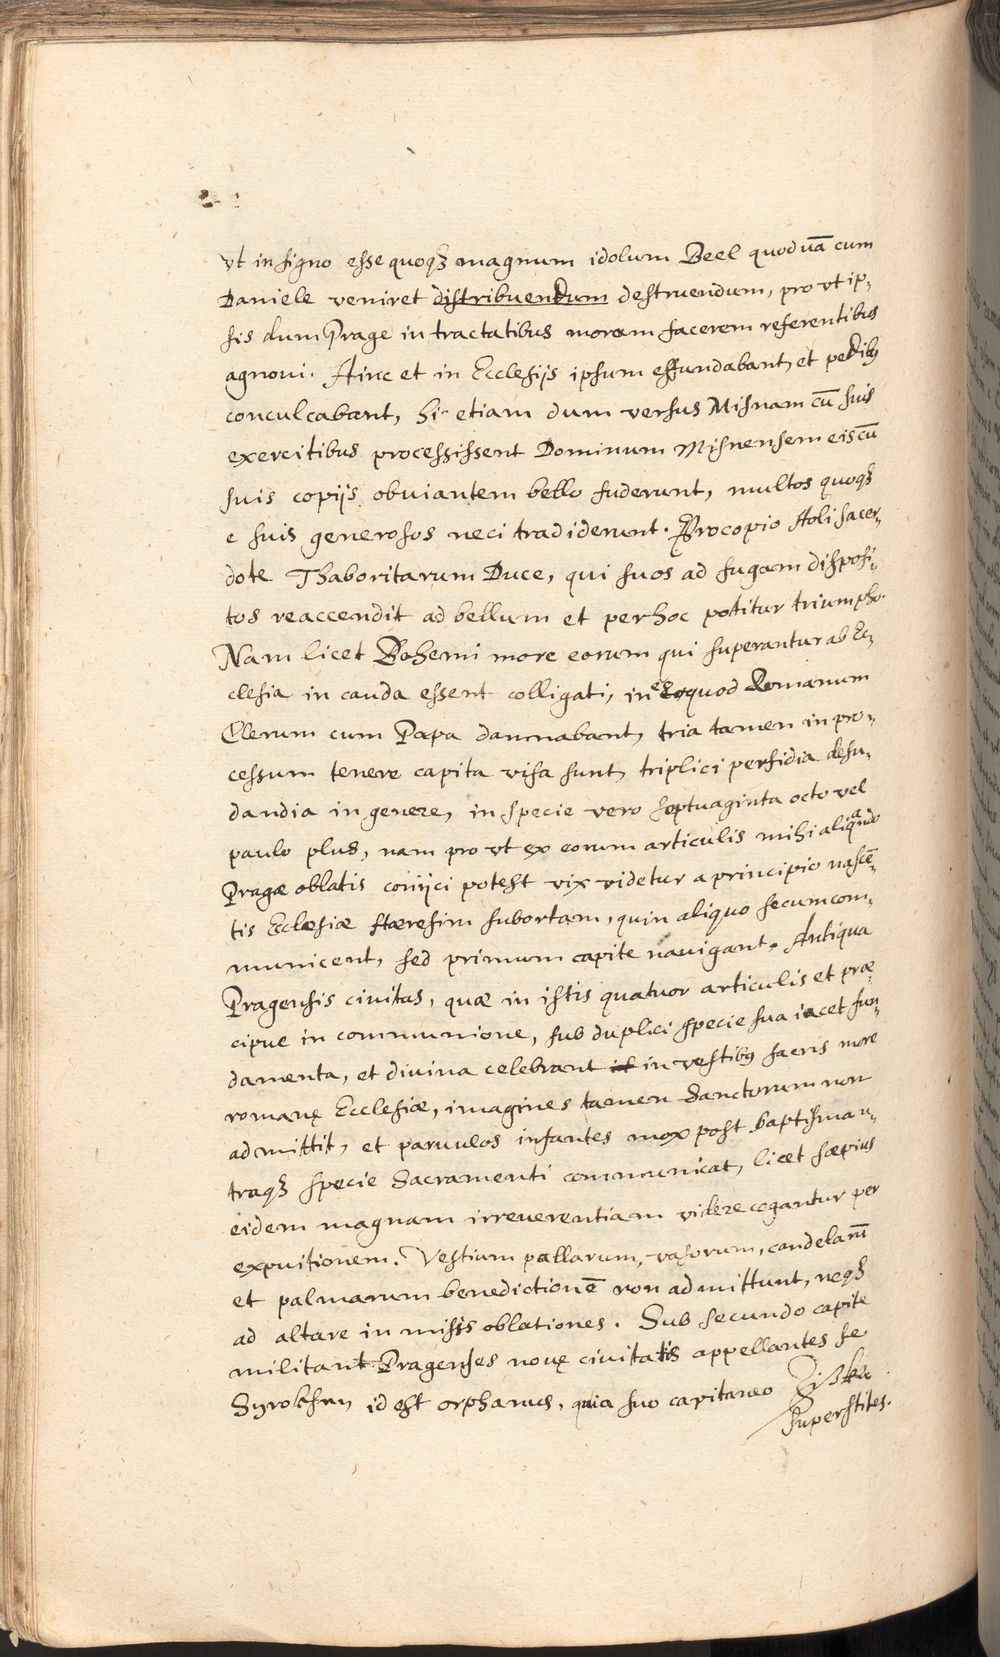 vt in signo esse quoqȝ magnum idolum Beel quod vā cum
Daniele veniret distribuendum destruendum, pro vt ip,
sis dum Prage in tractatibus moram facerem referentibus
agnoui. Hinc et in Ecclesijs ipsum effundabant, et pedibȝ
conculcabant, hi etiam dum versus Misnam cū suis
exercitibus processissent Dominum Misnensem eis cū
suis copijs obuiantem bello fuderunt, multos quoqȝ
e suis generosos neci tradiderunt. Procopio Holi sacer,
dote Thaboritarum Duce, qui suos ad fugam disposi,
tos reaccendit ad bellum et per hoc potitur triumpho.
Nam licet Bohemi more eorum qui superantur ab Ec,
clesia in cauda essent colligati, in eo quod Romanum
Clerum cum Papa damnabant, tria tamen in pro,
cessum tenere capita visa sunt, triplici perfidia desu,
dandia in genere, in specie vero septuaginta octo vel
paulo plus, nam pro vt ex eorum articulis mihi aliqñdo
Pragæ oblatis conijci potest vix videtur a principio nascē,
tis Ecclesiæ Hæresim subortam, quin aliquo secum com,
municent, sed primum capite nauigant. Antiqua
Pragensis ciuitas, quæ in istis quatuor articulis et præ,
cipue in communione, sub duplici specie sua iacet fun,
damenta, et diuina celebrant in vestibȝ sacris more
romanę Ecclesiæ, imagines tamen Sanctorum non
admittit, et paruulos infantes mox post baptisma u,
traqȝ specie Sacramenti communicat, licet sæpius
eidem magnam irreuerentiam videre cogantur per
expuitionem. Vestium pallarum, vasorum, candelarū
et palmarum benedictionē non admittunt, neqȝ
ad altare in missis oblationes. Sub secundo capite
militant Pragenses nouę ciuitatis appellantes se
Syrotkhy id est orphanos, quia suo capitaneo Zisska
superstites.